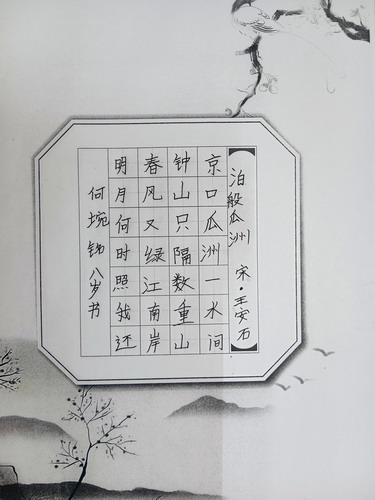 泊般瓜洲 宋·王安石
京口瓜洲一水间
钟山只隔数重山
春风又绿江南岸
明月何时照我还
何 八岁书